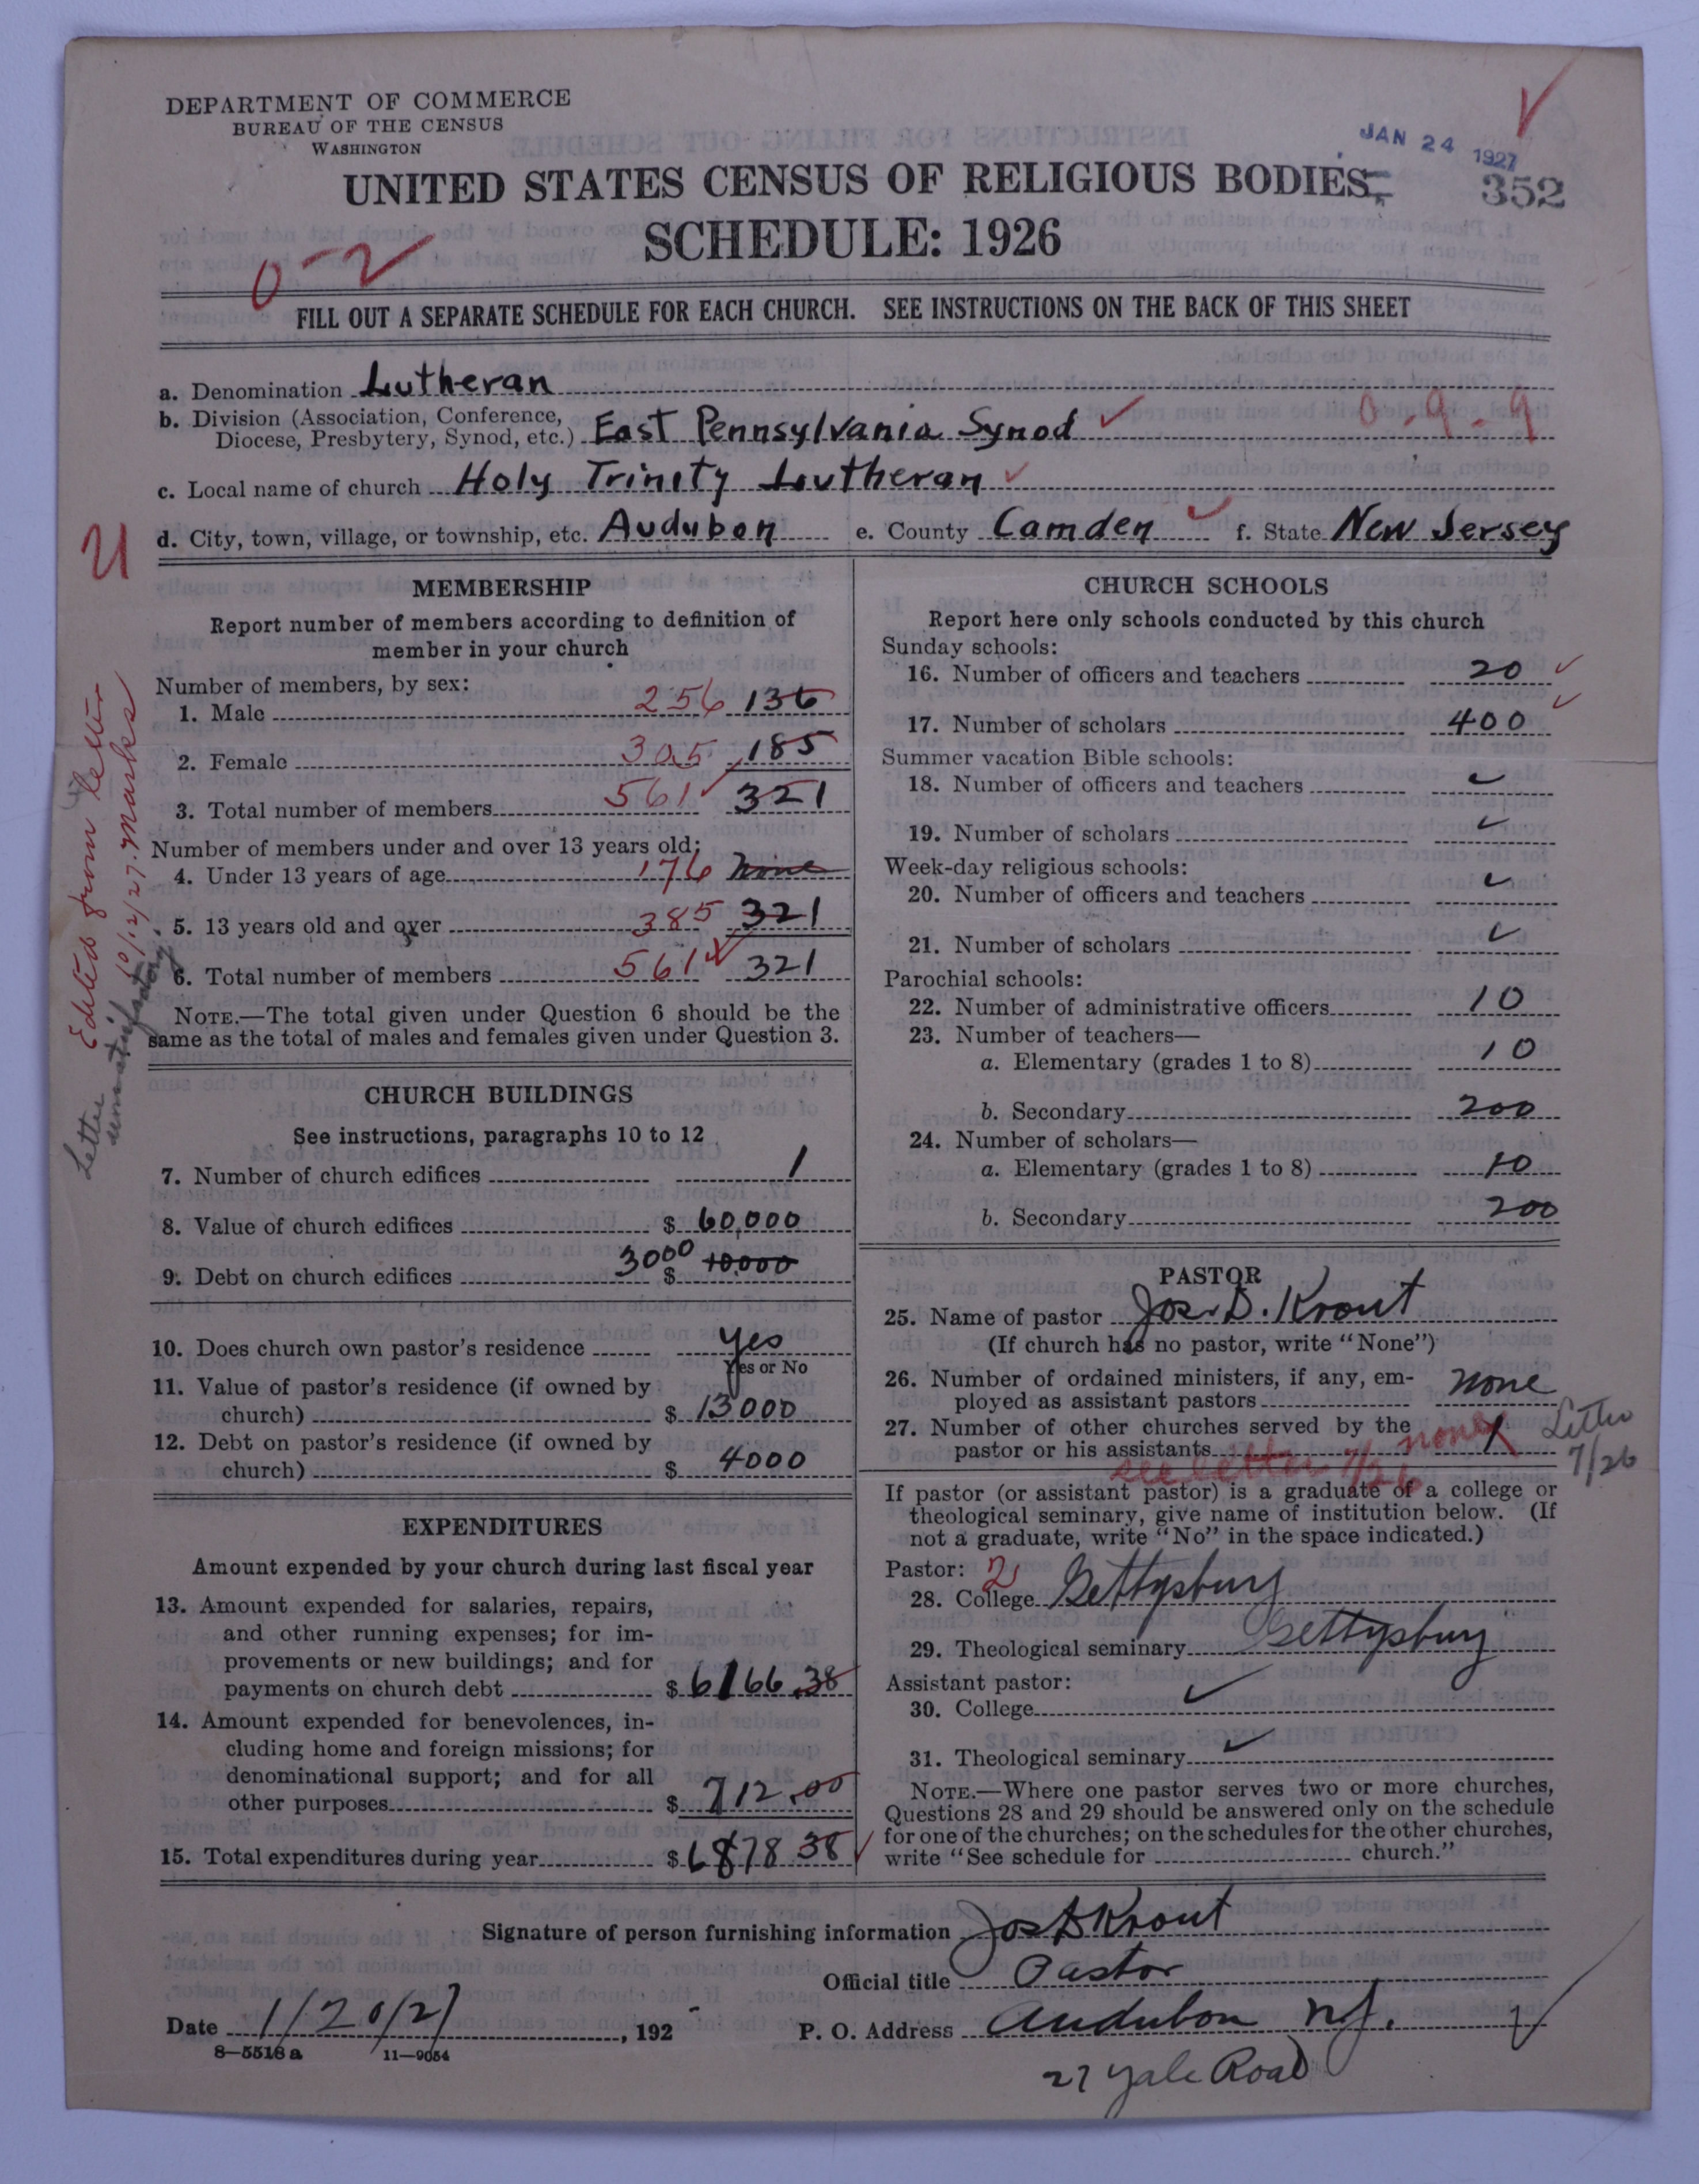 DEPARTMENT OF COMMERCE
BUREAU OF THE CENSUS
WASHINGTON
JAN 24 1927
352
UNITED STATES CENSUS OF RELIGIOUS BODIES
SCHEDULE: 1926
0-2
FILL OUT A SEPARATE SCHEDULE FOR EACH CHURCH. SEE INSTRUCTIONS ON THE BACK OF THIS SHEET
a. Denomination Lutheran
b. Division (Association, Conference,
Diocese, Presbytery, Synod, etc.) East Pennsylvania Synod 0-9-9
c. Local name of church Holy Trinity Lutheran
d. City, town, village, or township, etc. Audubon e. County Camden f. State New Jersey
MEMBERSHIP
Report number of members according to definition of
member in your church
Number of members, by sex:
1. Male 256 136
2. Female 305 185
3. Total number of members 561 321
Number of members under and over 13 years old:
4. Under 13 years of age 176 None
5. 13 years old and over 385 321
6. Total number of members 561 321
NOTE.—The total given under Question 6 should be the
same as the total of males and females given under Question 3.
Edited from letter
10/12/27. Marks
Letter
unsatisfactory
CHURCH BUILDINGS
See instructions, paragraphs 10 to 12
7. Number of church edifices 1
8. Value of church edifices $ 60,000
9. Debt on church edifices 3000 $ 10,000
10. Does church own pastor's residence yes
Yes or No
11. Value of pastor's residence (if owned by
church) $ 13000
12. Debt on pastor's residence (if owned by
church) $ 4000
EXPENDITURES
Amount expended by your church during last fiscal year
13. Amount expended for salaries, repairs,
and other running expenses; for im-
provements or new buildings; and for
payments on church debt $ 6166.38
14. Amount expended for benevolences, in-
cluding home and foreign missions; for
denominational support; and for all
other purposes $ 712.00
15. Total expenditures during year $ 6878 38
CHURCH SCHOOLS
Report here only schools conducted by this church
Sunday schools:
16. Number of officers and teachers 20
17. Number of scholars 400
Summer vacation Bible schools:
18. Number of officers and teachers
19. Number of scholars
Week-day religious schools:
20. Number of officers and teachers
21. Number of scholars
Parochial schools:
22. Number of administrative officers 10
23. Number of teachers—
a. Elementary (grades 1 to 8) 10
b. Secondary 200
24. Number of scholars—
a. Elementary (grades 1 to 8) 10
b. Secondary 200
PASTOR
25. Name of pastor Jos. D. Krout
(If church has no pastor, write "None")
26. Number of ordained ministers, if any, em-
ployed as assistant pastors none
27. Number of other churches served by the
pastor or his assistants none 1
Letter
7/26
see letter 7/26
If pastor (or assistant pastor) is a graduate of a college or
theological seminary, give name of institution below. (If
not a graduate, write "No" in the space indicated.)
Pastor: 2
28. College Gettysburg
29. Theological seminary Gettysburg
Assistant pastor:
30. College
31. Theological seminary
NOTE.—Where one pastor serves two or more churches,
Questions 28 and 29 should be answered only on the schedule
for one of the churches; on the schedules for the other churches,
write "See schedule for church."
Signature of person furnishing information Jos D Krout
Official title Pastor
Date 1/20/27, 192 P. O. Address Audubon N.J.
8—5518 a 11—9054
27 Yale Road